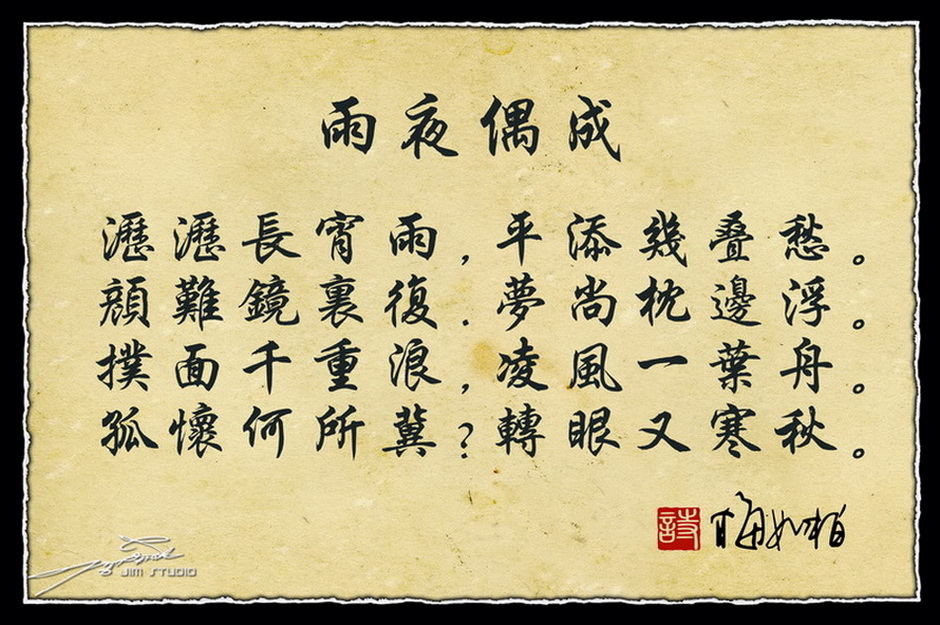 雨夜偶成
瀝瀝長宵雨，平添幾叠愁。
顔難鏡裏復．夢尚枕邊浮。
撲面千重浪，凌風一葉舟。
孤懷何所冀？轉眼又寒秋。
詩
梅如柏
JIM STUDIO